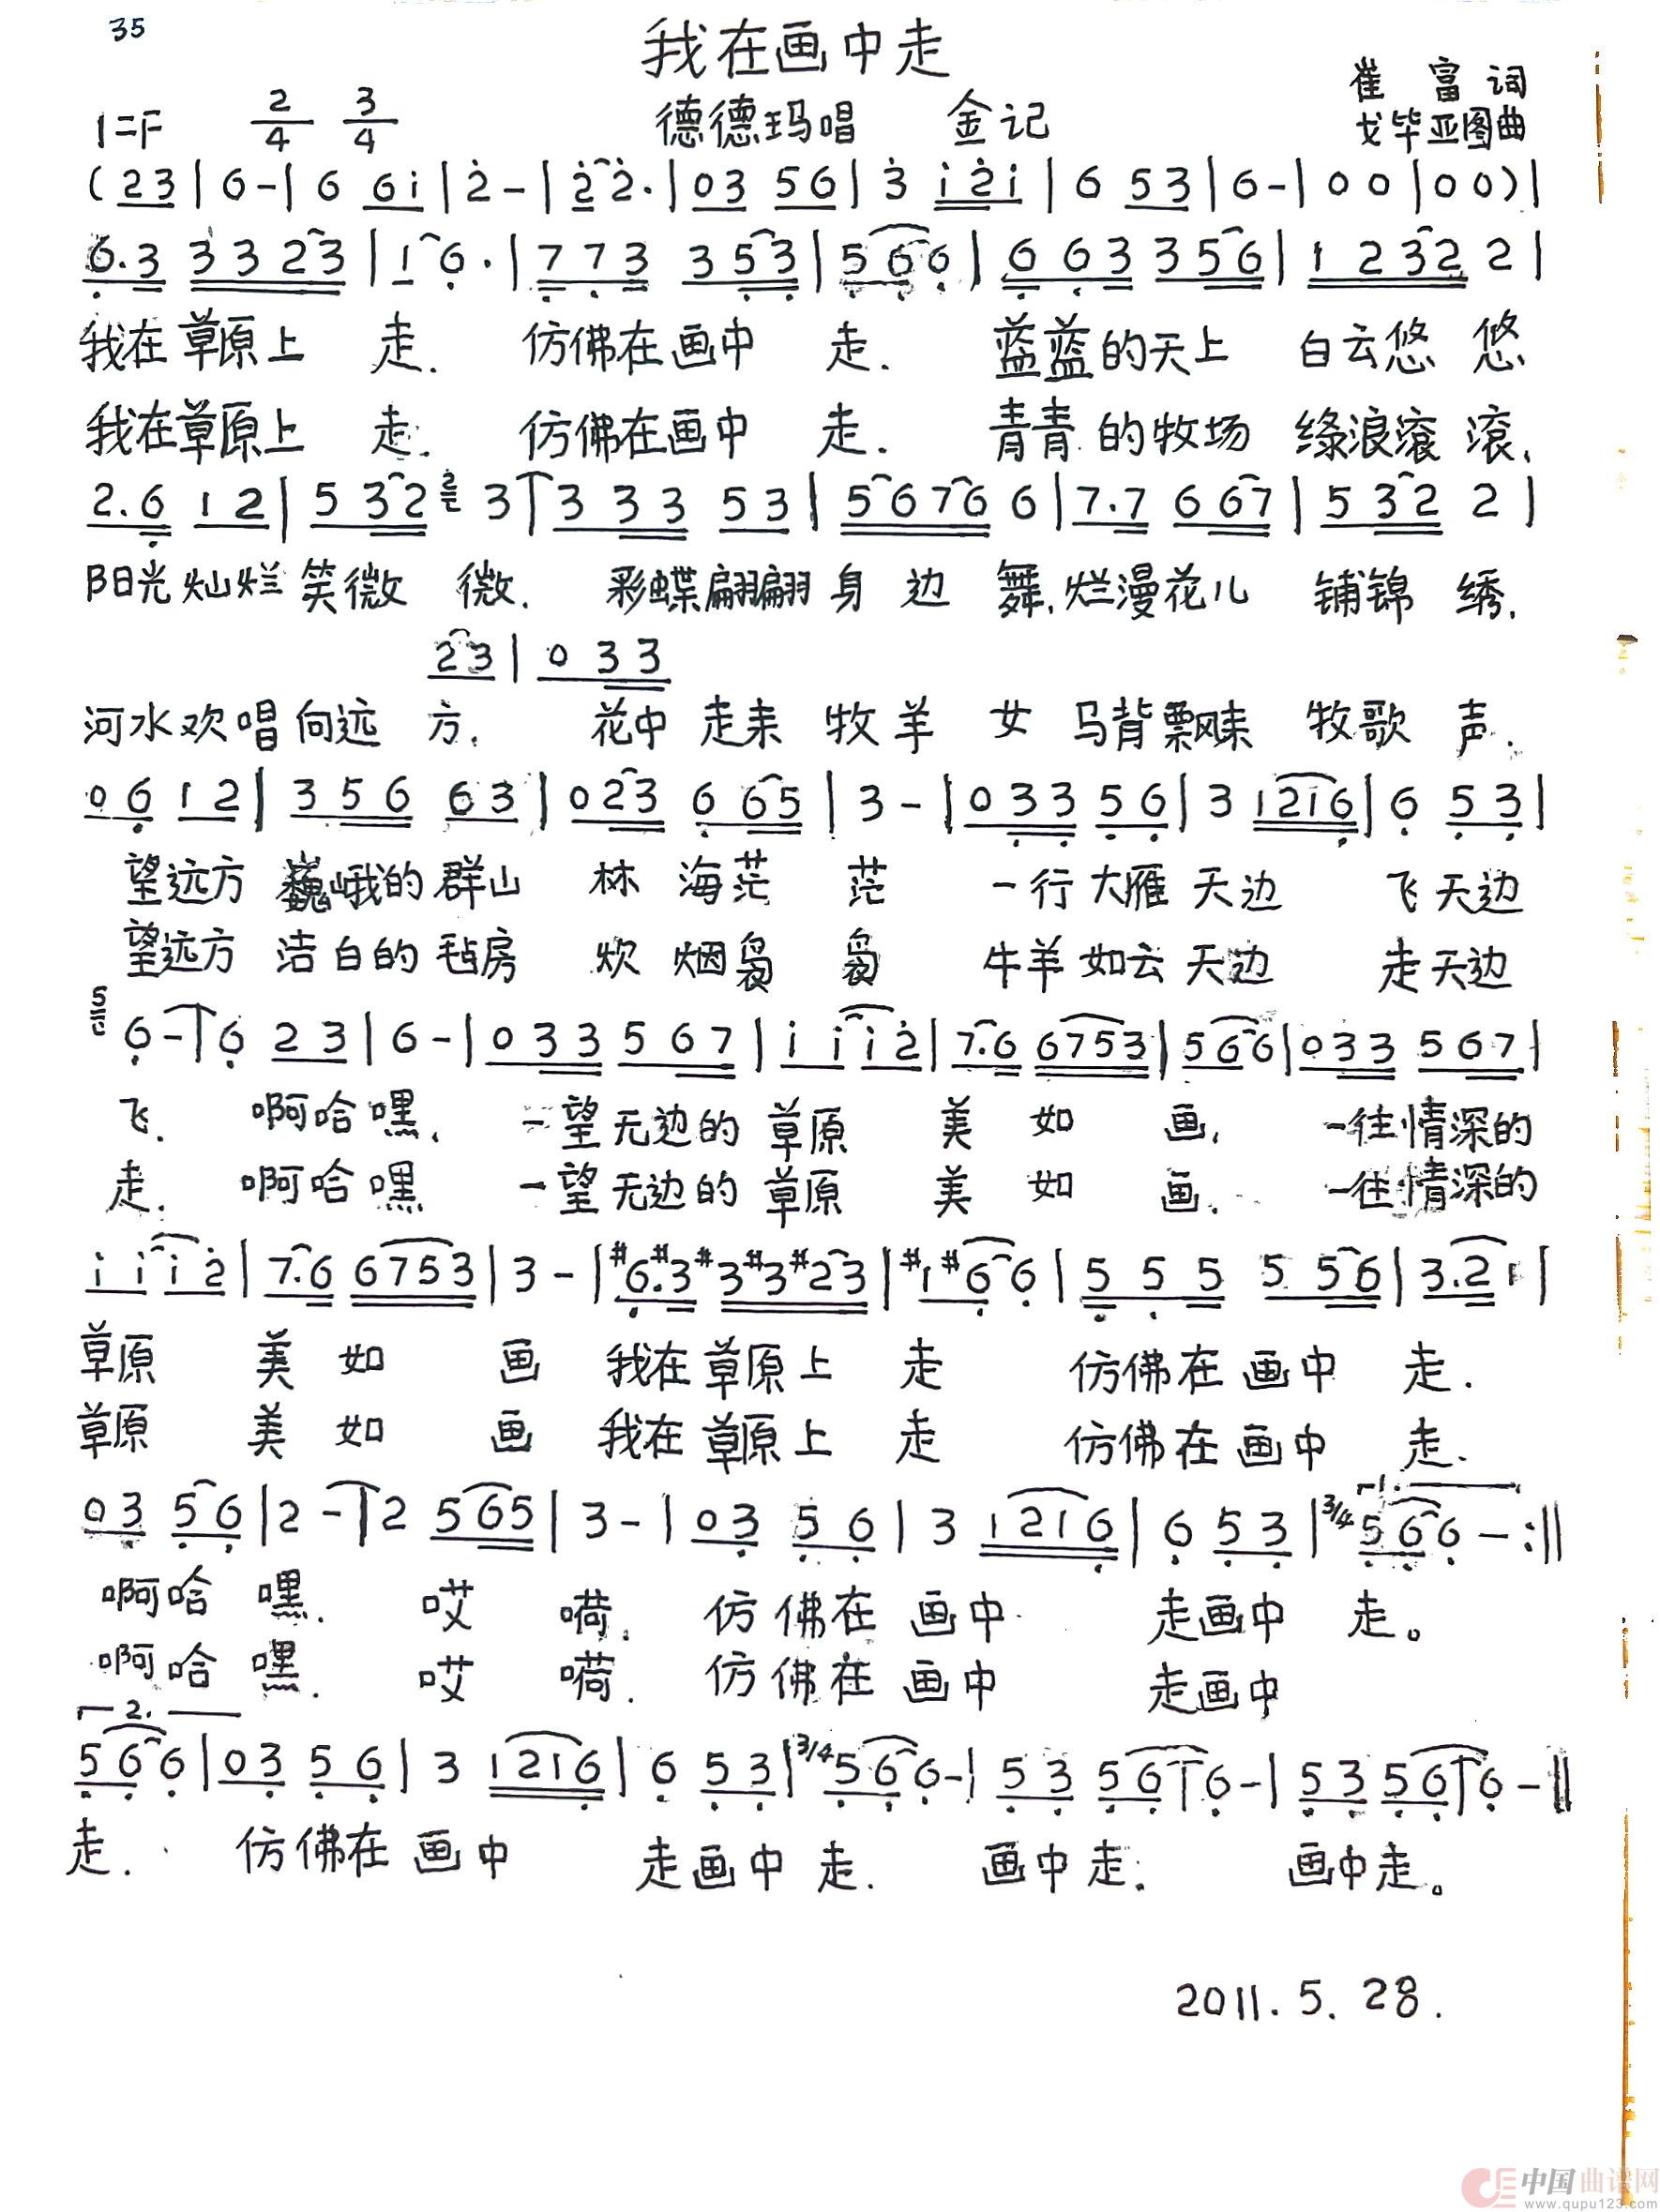 35
我在画中走
崔富词
1=F 2/4 3/4 德德玛唱 金记
戈毕亚图曲
(23|6-|6 6i|2̇-|2̇2̇.|03 56|3̇ i2̇i|6 53|6-|00|00)|
6̣.3 3323|16̣.|7̣7̣3 353|5̣6̣6̣|6̣6̣3 356|1232 2|
我在草原上 走. 仿佛在画中 走. 蓝蓝的天上 白云悠 悠
我在草原上 走. 仿佛在画中 走. 青青的牧场 绿浪滚 滚.
2.6̣ 12|532 2 3|333 53|5676 6|7.7 667|532 2|
阳光灿烂笑微 微. 彩蝶翩翩身边 舞,烂漫花儿 铺锦 绣.
23|033
河水欢唱向远 方. 花中走来牧羊 女 马背飘来 牧歌 声.
06̣ 12|356 63|023 6̣6̣5̣|3-|03̣3̣ 5̣6̣|3 1216̣|6̣ 5̣3̣|
望远方 巍峨的群山 林海茫 茫 一行大雁天边 飞天边
望远方 洁白的毡房 炊烟袅 袅 牛羊如云天边 走天边
5 6̣-|6̣ 23|6-|033 567|i i i2̇|7.6 6753|566|033 567|
飞. 啊哈嘿. 一望无边的草原 美 如 画. 一往情深的
走. 啊哈嘿 一望无边的草原 美 如 画. 一往情深的
i i i2̇|7.6 6753|3-|#6̣.#3 #3#3#23|#1#6̣6̣|5̣5̣5̣ 556|3.21|
草原 美 如 画 我在草原上 走 仿佛在画中 走.
草原 美 如 画 我在草原上 走 仿佛在画中 走.
03̣ 5̣6̣|2-|2 565|3-|03̣ 5̣6̣|3 1216̣|6̣ 5̣3̣|3/4 1. 5̣6̣6̣-:||
啊哈 嘿. 哎 嗬. 仿佛在画中 走画中 走。
啊哈 嘿. 哎 嗬. 仿佛在画中 走画中
2.
5̣6̣6̣|03̣ 5̣6̣|3 1216̣|6̣ 5̣3̣|3/4 5̣6̣6̣-|5̣3̣ 5̣6̣|6̣-|5̣3̣ 5̣6̣|6̣-||
走. 仿佛在画中 走画中走. 画中走. 画中走。
2011.5.28.
中国曲谱网
www.qupu123.com